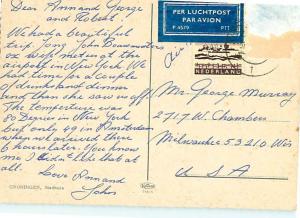 Dear Ann and George
and Robert!
We had a beautiful
trip. John
us. Kept meet us at the
airport in New York. We
had time for a couple
of drinks and dinner
and then she saw us off.
The temperture was
80 Degrees in New York
but only 49 in Amsterdam
when we arrived there
6 hours later. You know
me I didn't like that at
all.
Love Ann and
John
PER LUCHTPOST
PAR AVION
P 4579 PTT
Air
NEDERLAND
Mr. George Murray
2717 W. Chambers
Milwaukee 53210 Wis
U S A
GRONINGEN,